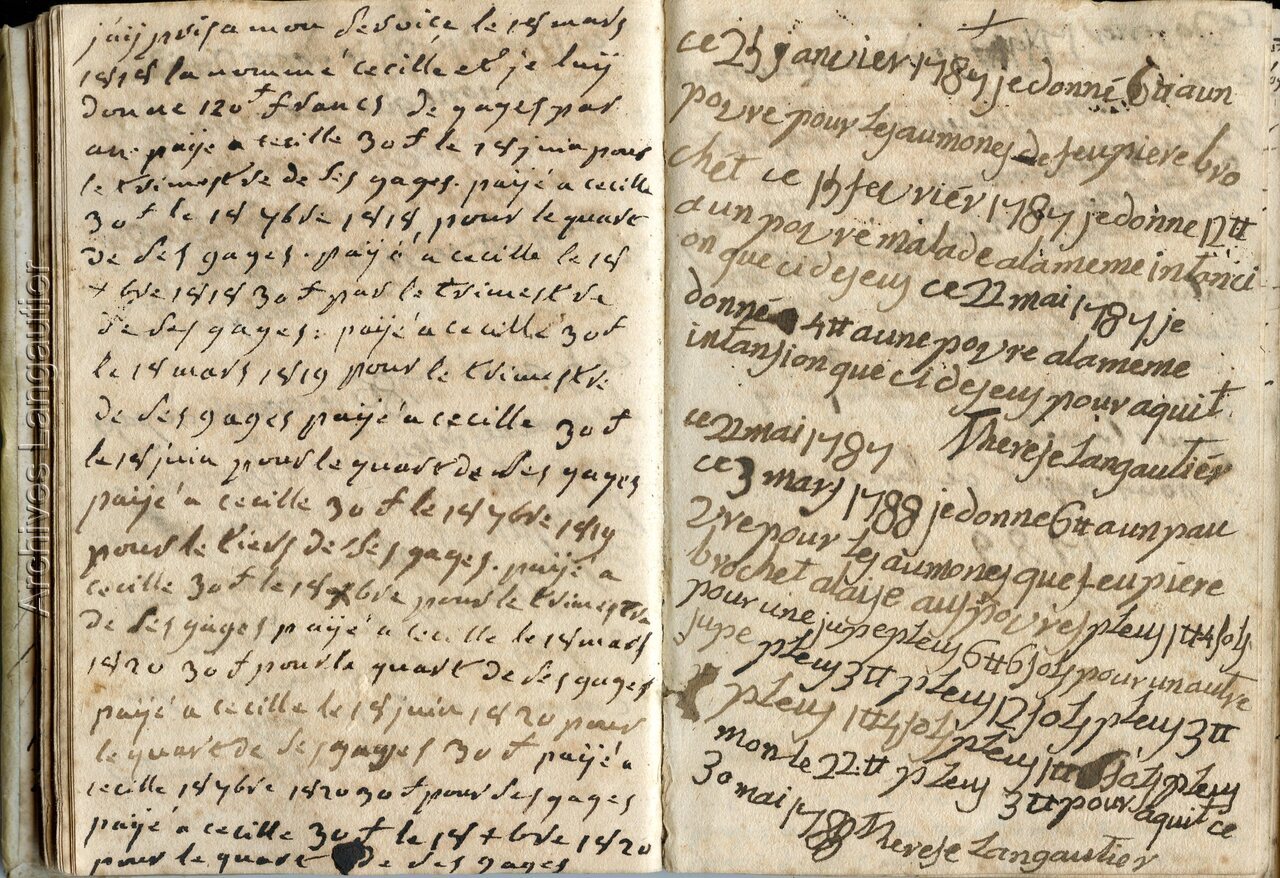 j'aij pris a mon service le 18 mars
1818 la nommé cecille et je luij
donne 120 ₶ francs de gages par
an. paijé a cecille 30 ₶ le 18 juin pour
le trimestre de ses gages. paijé a cecille
30 ₶ le 18 7bre 1818 pour le quart
de ses gages. paijé a cecille le 18
Xbre 1818 30 ₶ par le trimestre
de ses gages: paijé a cecille 30 ₶
le 18 mars 1819 pour le trimestre
de ses gages paijé a cecille 30 ₶
le 18 juin pour le quart de ses gages
paijé a cecille 30 ₶ le 18 7bre 1819
pour le tiers de ses gages. paijé a
cecille 30 ₶ le 18 Xbre pour le trimestre
de ses gages paijé a cecille le 18 mars
1820 30 ₶ pour le quart de ses gages
paijé a cecille le 18 juin 1820 pour
le quart de ses gages 30 ₶ paijé a
cecille 18 7bre 1820 30 ₶ pour ses gages
paijé a cecille 30 ₶ le 18 Xbre 1820
pour le quart de ses gages
ce 25 janvier 1787 je donné 6 ₶ a un
povre pour les aumones de feu piere bro
chet ce 15 fecvriér 1787 je donne 12 ₶
a un povre malade a la meme intanci
on que ci deseus ce 22 mai 1787 je
donné 4 ₶ a une povre a la meme
intansion que ci deseus pour aquit
ce 22 mai 1787 Therese Langautiér
ce 3 mars 1788 je donne 6 ₶ a un pau
vre pour les aumones que feu piere
brochet a laise aus povres pleus 1 ₶ 4 sols
pour une jupe pleus 6 ₶ 6 sols pour un autre
jupe pleus 3 ₶ pleus 12 sols pleus 3 ₶
pleus 1 ₶ 4 sols pleus 1 ₶ sols pleus
mon le 22 ₶ pleus 3 ₶ pour aquit ce
30 mai 1788 Therese Langautier
Archives Langautier